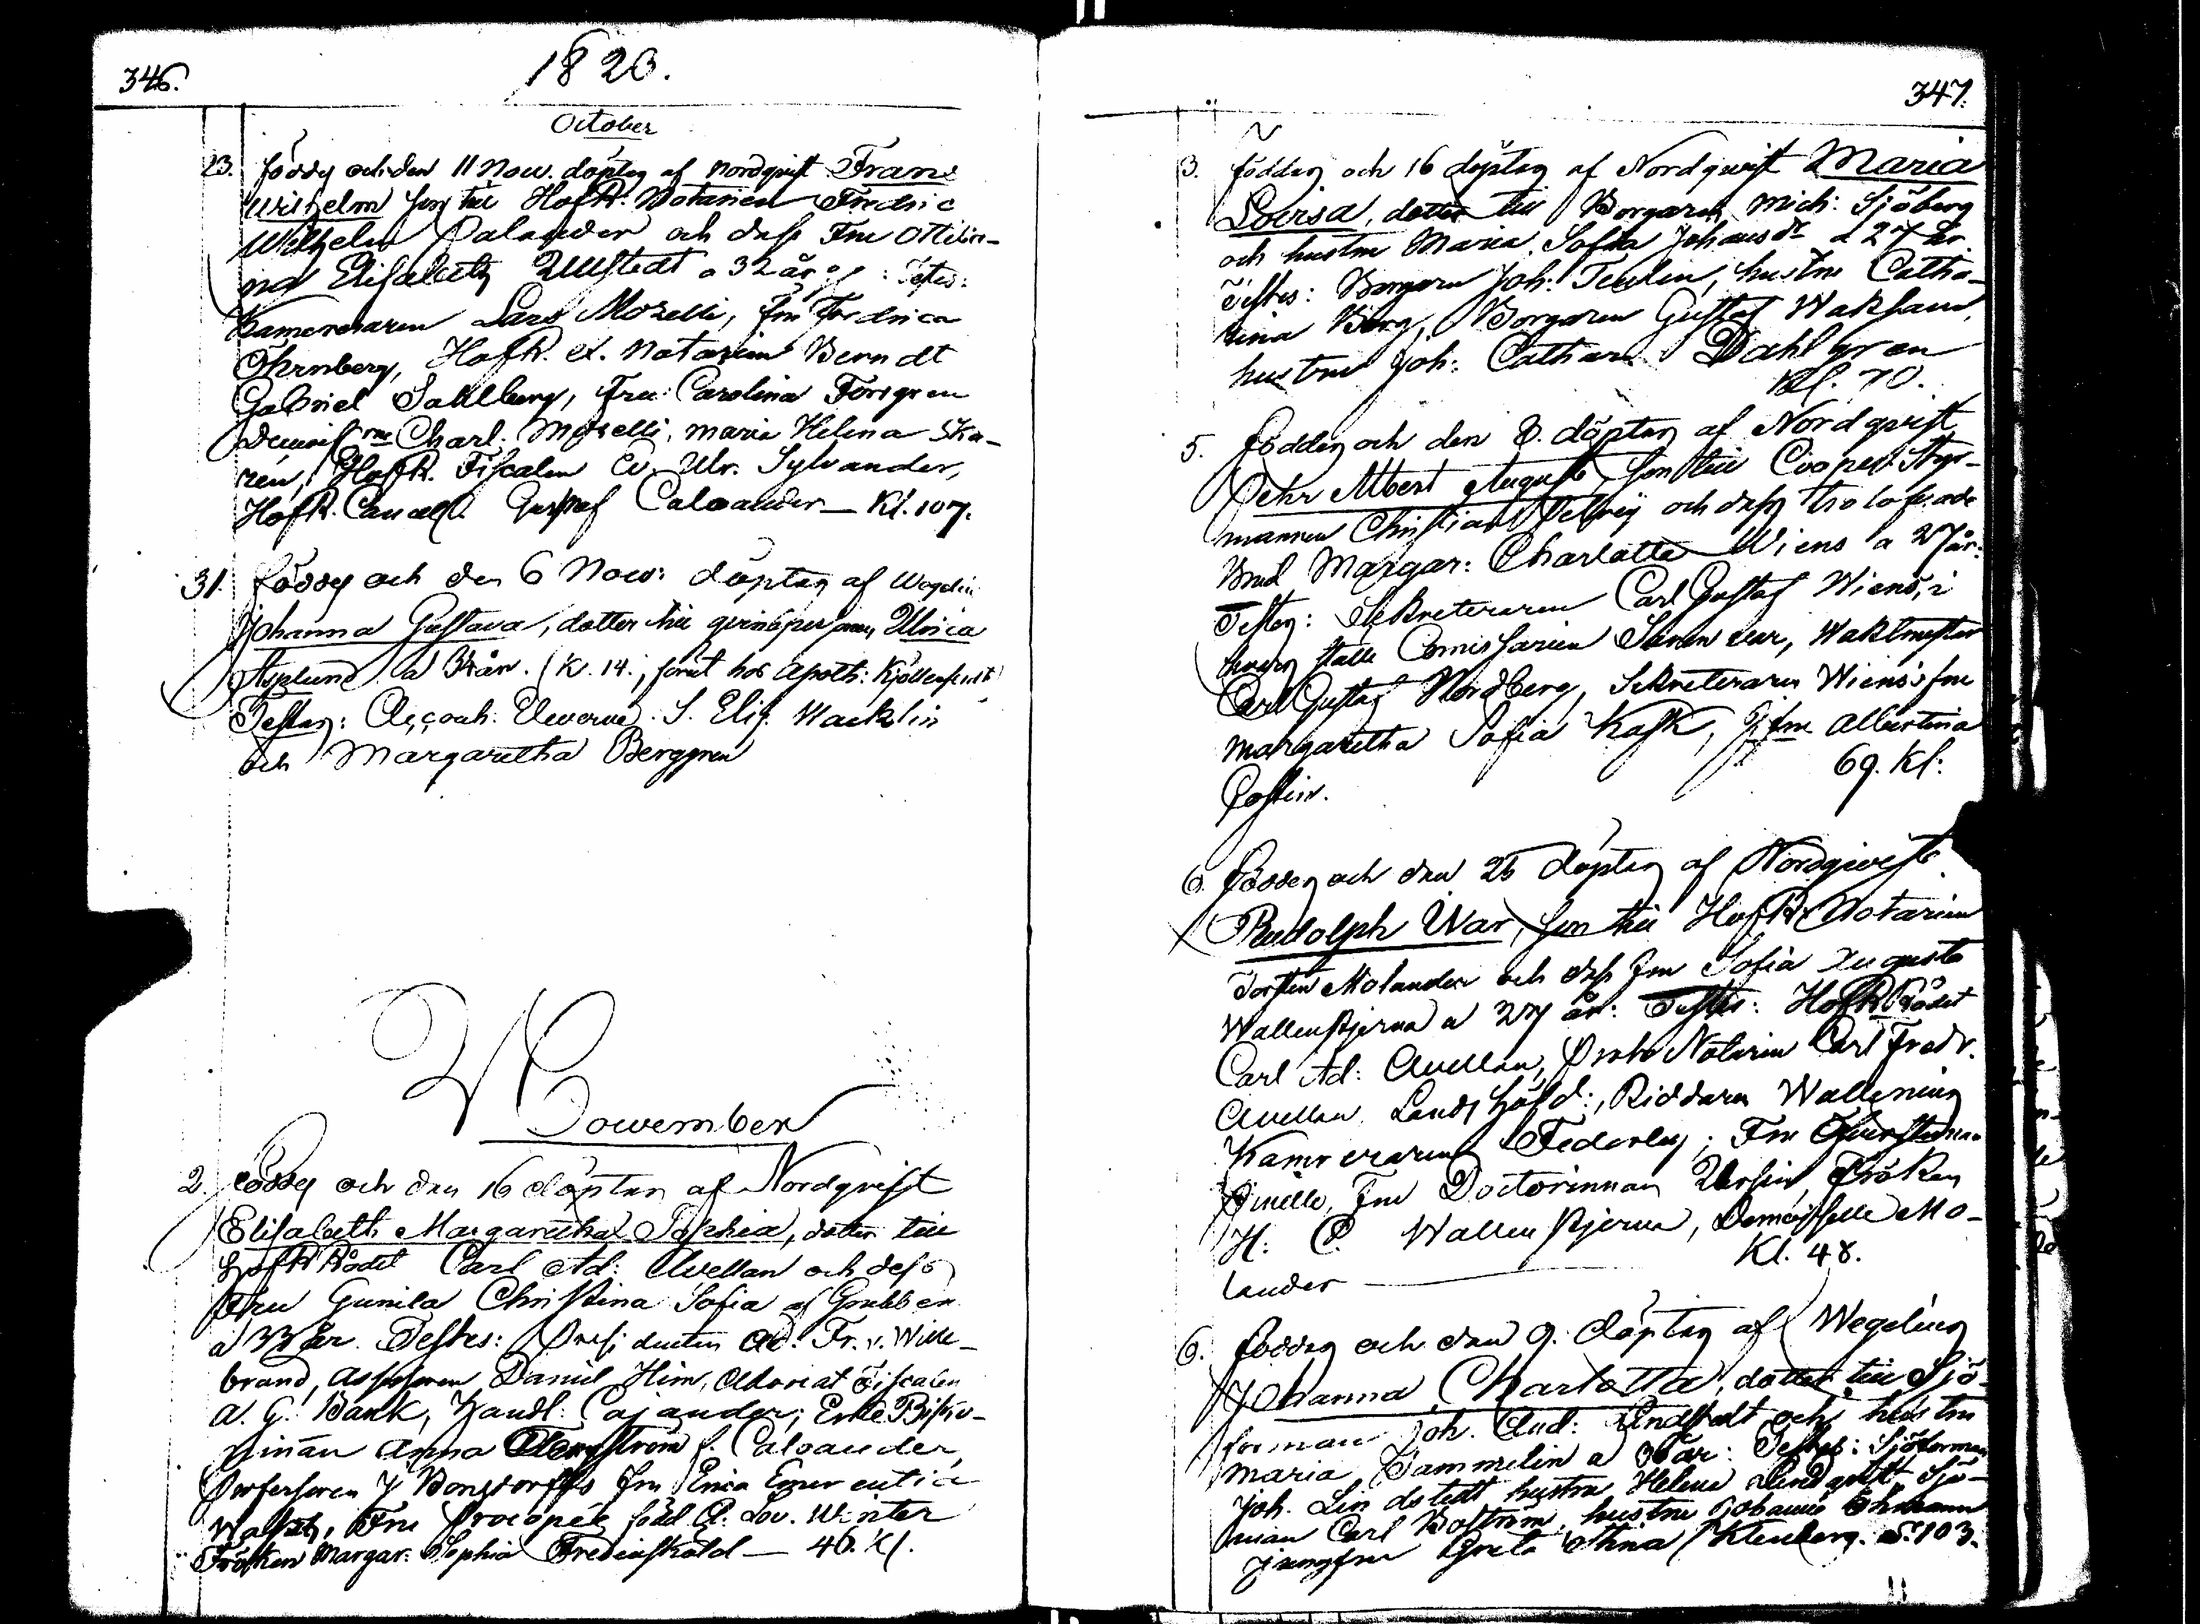 346.
1823.
October
23. född och den 11 Nov. döpter af Nordqvist Frans
Wilhelm son till HofR. Notarien Fredric
Wilhelm Palander och dess Fru Ottilia-
na Elisabeth Ullstedt a 32 år Testes:
Kamereraren Lars Moselli, fru Fredrica
Öhrnberg, HofR. ex. Notarien Berndt
Gabriel Sahlberg, Fru Carolina Forsgren
Charl. Moselli, Maria Helena Ska-
rén, HofR. Fiscalen Ulr. Sylvander,
HofR. Cancell. Gustaf Caloander — Kl. 107.
31. född och den 6 Nov: döpter af Wegelius
Johanna Gustava, dotter till qvinspersonen Ulrica
Asplund a 34 år. (K. 14.,
Testes: S. Elis. Wacklin
och Margaretha Berggren
November
2. född och den 16 döpter af Nordqvist
Elisabeth Margaretha Sophia, dotter till
HofRRådet Carl Ad: Avellan och dess
Fru Gunila Christina Sofia af Grubben
a 33 år. Testes: Presidenten Fr. v. Wille-
brand, Assessoren Daniel Him, Advocat Fiscalen
A. G. Bank, Handl. Cajander; Enke Bisko-
pinnan Anna f. Caloander,
Professoren J Bonsdorffs fru Erica Emerentia
Fru Procopé född Lov. Winter
Fröken Margar: Sophia Fredenskold — 46. Kl.
347.
3. född och 16 döpter af Nordqvist Maria
Lovisa, dotter till Borgaren Mich: Sjöberg
och hustru Maria Sofia Johansdr a 27 år.
Testes: Borgaren Joh: hustru Catha-
rina Berg, Borgaren Gustaf
hustru Joh: Cathar: Dahlgren
Kl. 70.
5. född och den 8. döpter af Nordqvist
Pehr Albert August, son till Cooper. Styr-
mannen Christian och dess trolofvade
Brud Margar: Charlotta Wiens a 27 år:
Testes: Sekreteraren Carl Gustaf Wiens, i
hvars ställe Comissarien Waktmästar
Carl Gustaf Nordberg, Sekreteraren Wiens's fru
Margaretha Sofia Kask, Jfru Albertina
69. Kl:
6. född och den 25 döpter af Nordqvist
Rudolph Ivar, son till HofR Notarien
Torsten Molander och dess fru Sofia Augusta
Wallenstjerna a 27 år: Testes: HofRRådet
Carl Ad: Avellan, Proto Notarien Carl Fredr.
Avellan, Landshöfd:, Riddaren
Kamreraren Federley; Fru
Fru Doctorinnan Ursin, Fröken
H: C. Wallenstjerna, Demoiselle Mo-
Kl. 48.
lander
6. född och den 9. döpter af Wegelius
Johanna Charlotta, dotter till Sjö-
forman Joh. And: Lindstedt och hustru
Maria Tammelin a 36 år: Testes: Sjöforman
Joh. Lindstedt hustru Helena Lindqvist Sjö-
man Carl Boström, hustru Johanna
Jungfru Greta Stina S. 103.